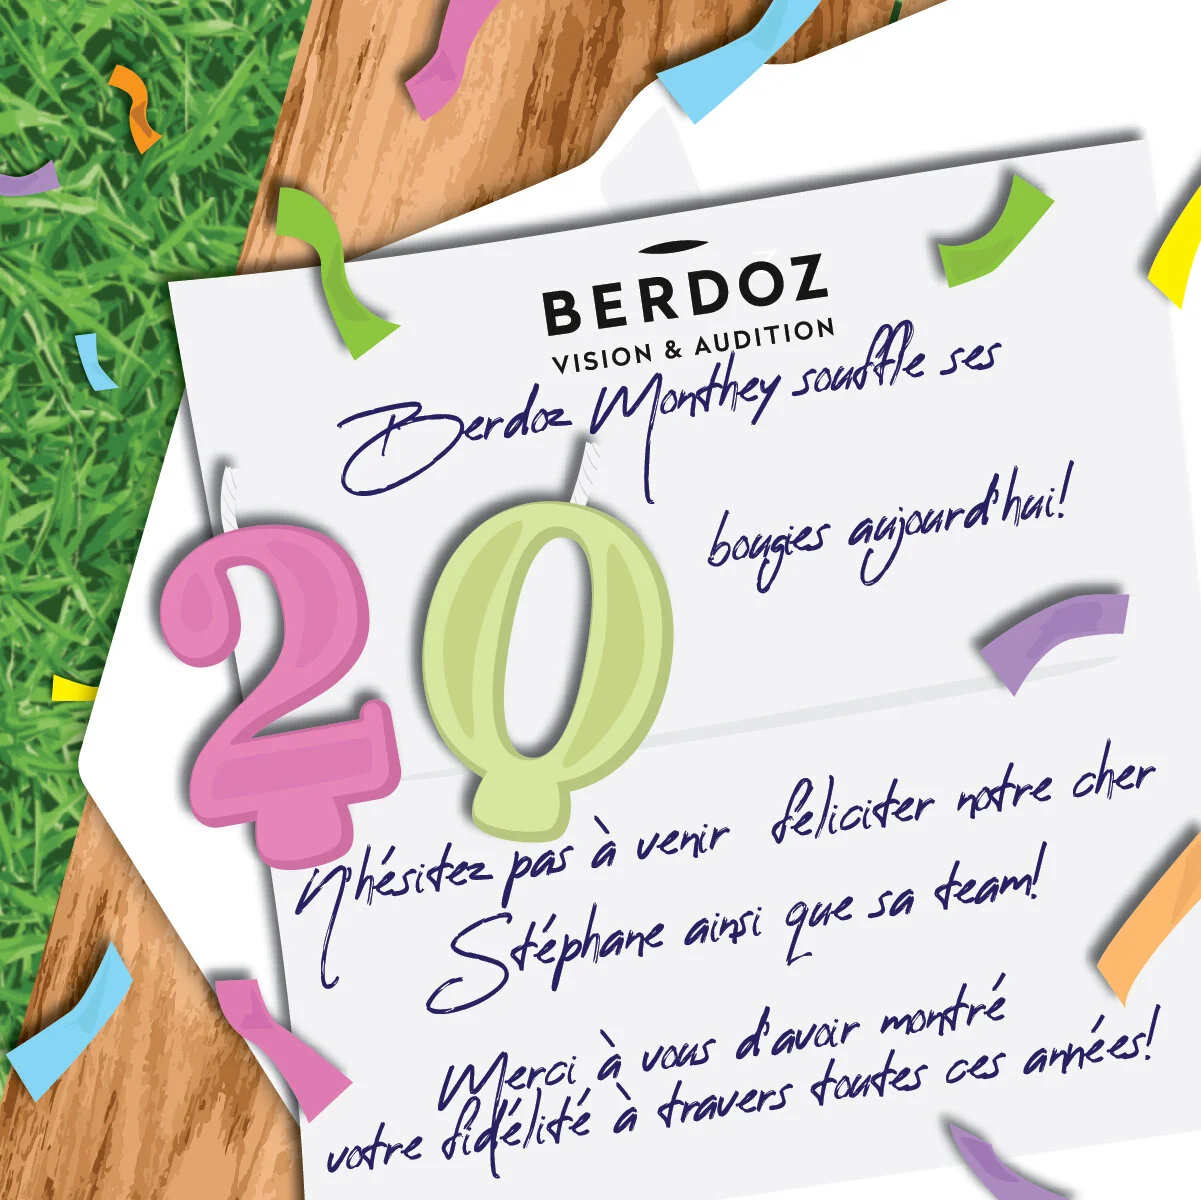 BERDOZ
VISION & AUDITION
Berdoz Monthey souffle ses
20
bougies aujourd'hui!
N'hésitez pas à venir feliciter notre cher
Stéphane ainsi que sa team!
Merci à vous d'avoir montré
votre fidélité à travers toutes ces années!